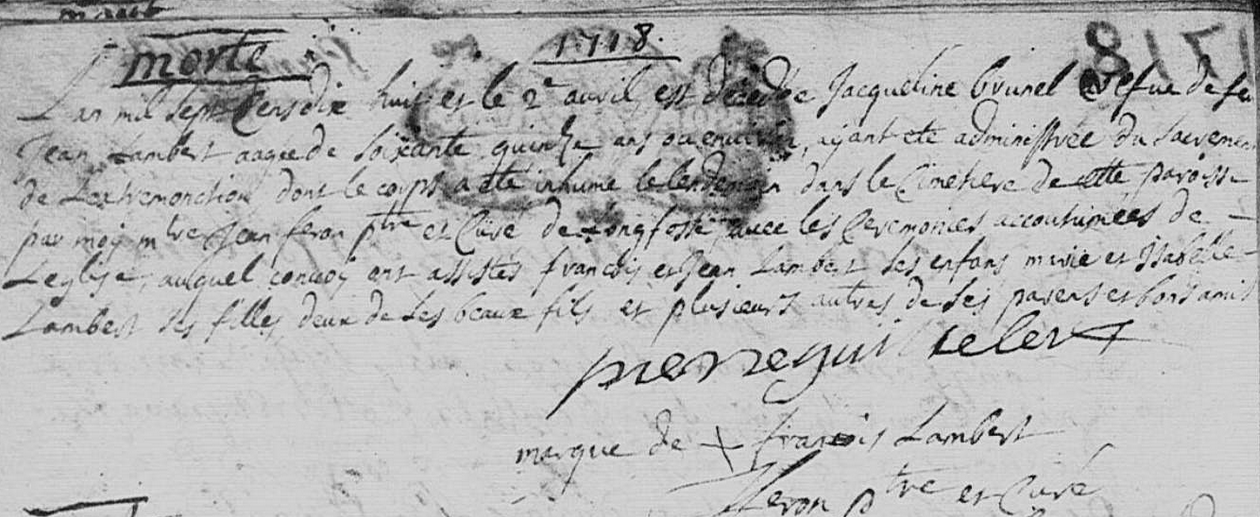 1718.
morte
Lan mil sept Cens dix huit et le 2e avril, est decedée Jacqueline brunel vefue de feu
Jean Lambert aagee de soixante quinze ans ou environ, ayant eté administrée du sacrement
de Lextremonction dont le corps a eté inhumé le lendemain dans le Cimetiere de cette paroisse
par moy mtre Jean feron ptre et Curé de Longfossé avec les Ceremonies accoutumées de
Leglise, auquel convoy ont assistés francois et Jean Lambert ses enfans marie et Isabelle
Lambert ses filles deux de ses beaux fils et plusieurs autres de ses parens et bons amis
pierre
marque de + francois Lambert
feron ptre et Curé